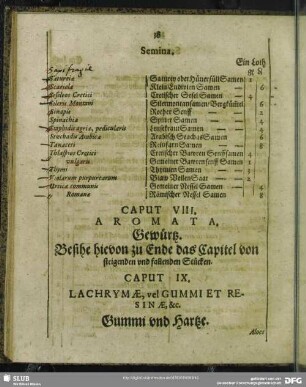 18
Semina.
Ein Loth
Saxifragiæ
Satureia — Saturey oder Hünerfüll Samen
Scariola — Klein Endivien Samen — 6
Seseleos Cretici — Cretischer Sesel Samen — 4
Sileris Montani — Silermontansamen/Bergkümel
Sinapis — Rother Senff
Spinachia — Spinet Samen — 4
Staphidis agria, pedicularis — Leußkraut Samen — 4
Stœchadis Arabica — Arabisch Stœchas Samen
Tanaceti — Reinfarn Samen — 8
Thlaspeos Cretici — Cretischer Bawren Senff Samen
vulgaris — Gemeiner Bawrensenff Samen
Thymi — Thymien Samen
Violarum purpurearum — Blaw Veilen Saat — 2
Urtica communis — Gemeiner Nessel Samen — 4
Romana — Römischer Nessel Samen — 8
CAPUT VIII.
AROMATA,
Gewürtz.
Besihe hievon zu Ende das Capitel von
steigenden und fallenden Stücken.
CAPUT IX.
LACHRYMÆ, vel GUMMI ET RE-
SINÆ, &c.
Gummi und Hartze.
Aloes
SLUB